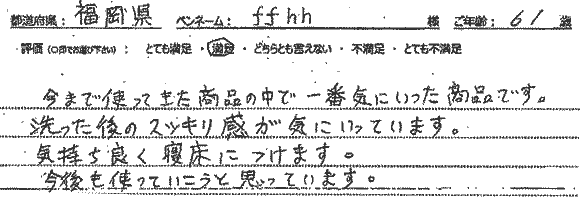 都道府県： 福岡県 ペンネーム： ffhh 様 ご年齢： 61 歳
・評価（○印でお選び下さい）： とても満足 ・ 満足 ・ どちらとも言えない ・ 不満足 ・ とても不満足
今まで使ってきた商品の中で一番気にいった商品です。
洗った後のスッキリ感が気にいっています。
気持ち良く寝床につけます。
今後も使っていこうと思っています。